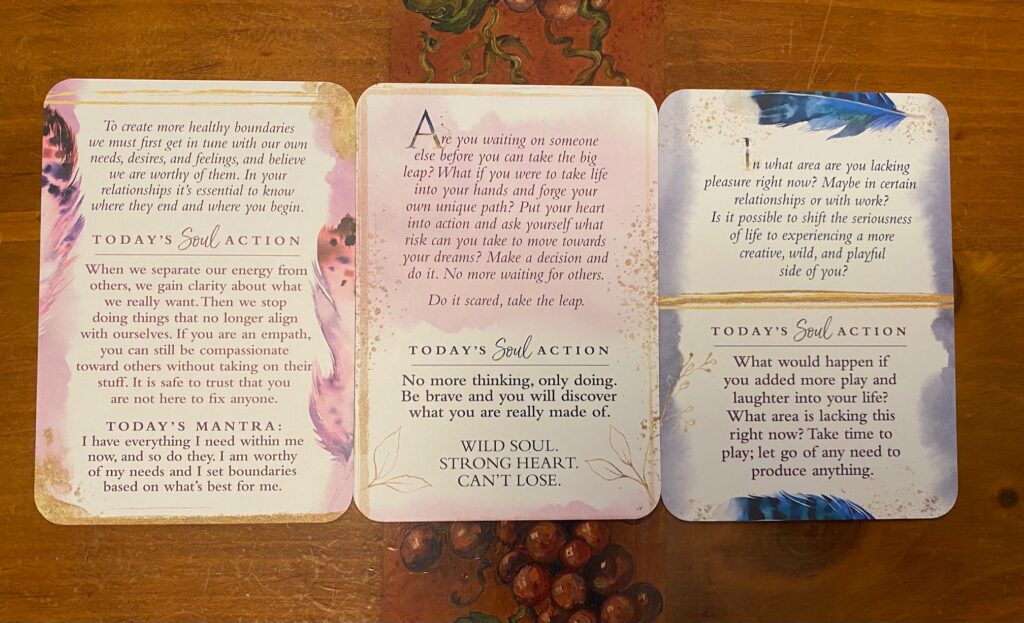 To create more healthy boundaries
we must first get in tune with our own
needs, desires, and feelings, and believe
we are worthy of them. In your
relationships it's essential to know
where they end and where you begin.
TODAY'S Soul ACTION
When we separate our energy from
others, we gain clarity about what
we really want. Then we stop
doing things that no longer align
with ourselves. If you are an empath,
you can still be compassionate
toward others without taking on their
stuff. It is safe to trust that you
are not here to fix anyone.
TODAY'S MANTRA:
I have everything I need within me
now, and so do they. I am worthy
of my needs and I set boundaries
based on what's best for me.
Are you waiting on someone
else before you can take the big
leap? What if you were to take life
into your hands and forge your
own unique path? Put your heart
into action and ask yourself what
risk can you take to move towards
your dreams? Make a decision and
do it. No more waiting for others.
Do it scared, take the leap.
TODAY'S Soul ACTION
No more thinking, only doing.
Be brave and you will discover
what you are really made of.
WILD SOUL.
STRONG HEART.
CAN'T LOSE.
In what area are you lacking
pleasure right now? Maybe in certain
relationships or with work?
Is it possible to shift the seriousness
of life to experiencing a more
creative, wild, and playful
side of you?
TODAY'S Soul ACTION
What would happen if
you added more play and
laughter into your life?
What area is lacking this
right now? Take time to
play; let go of any need to
produce anything.